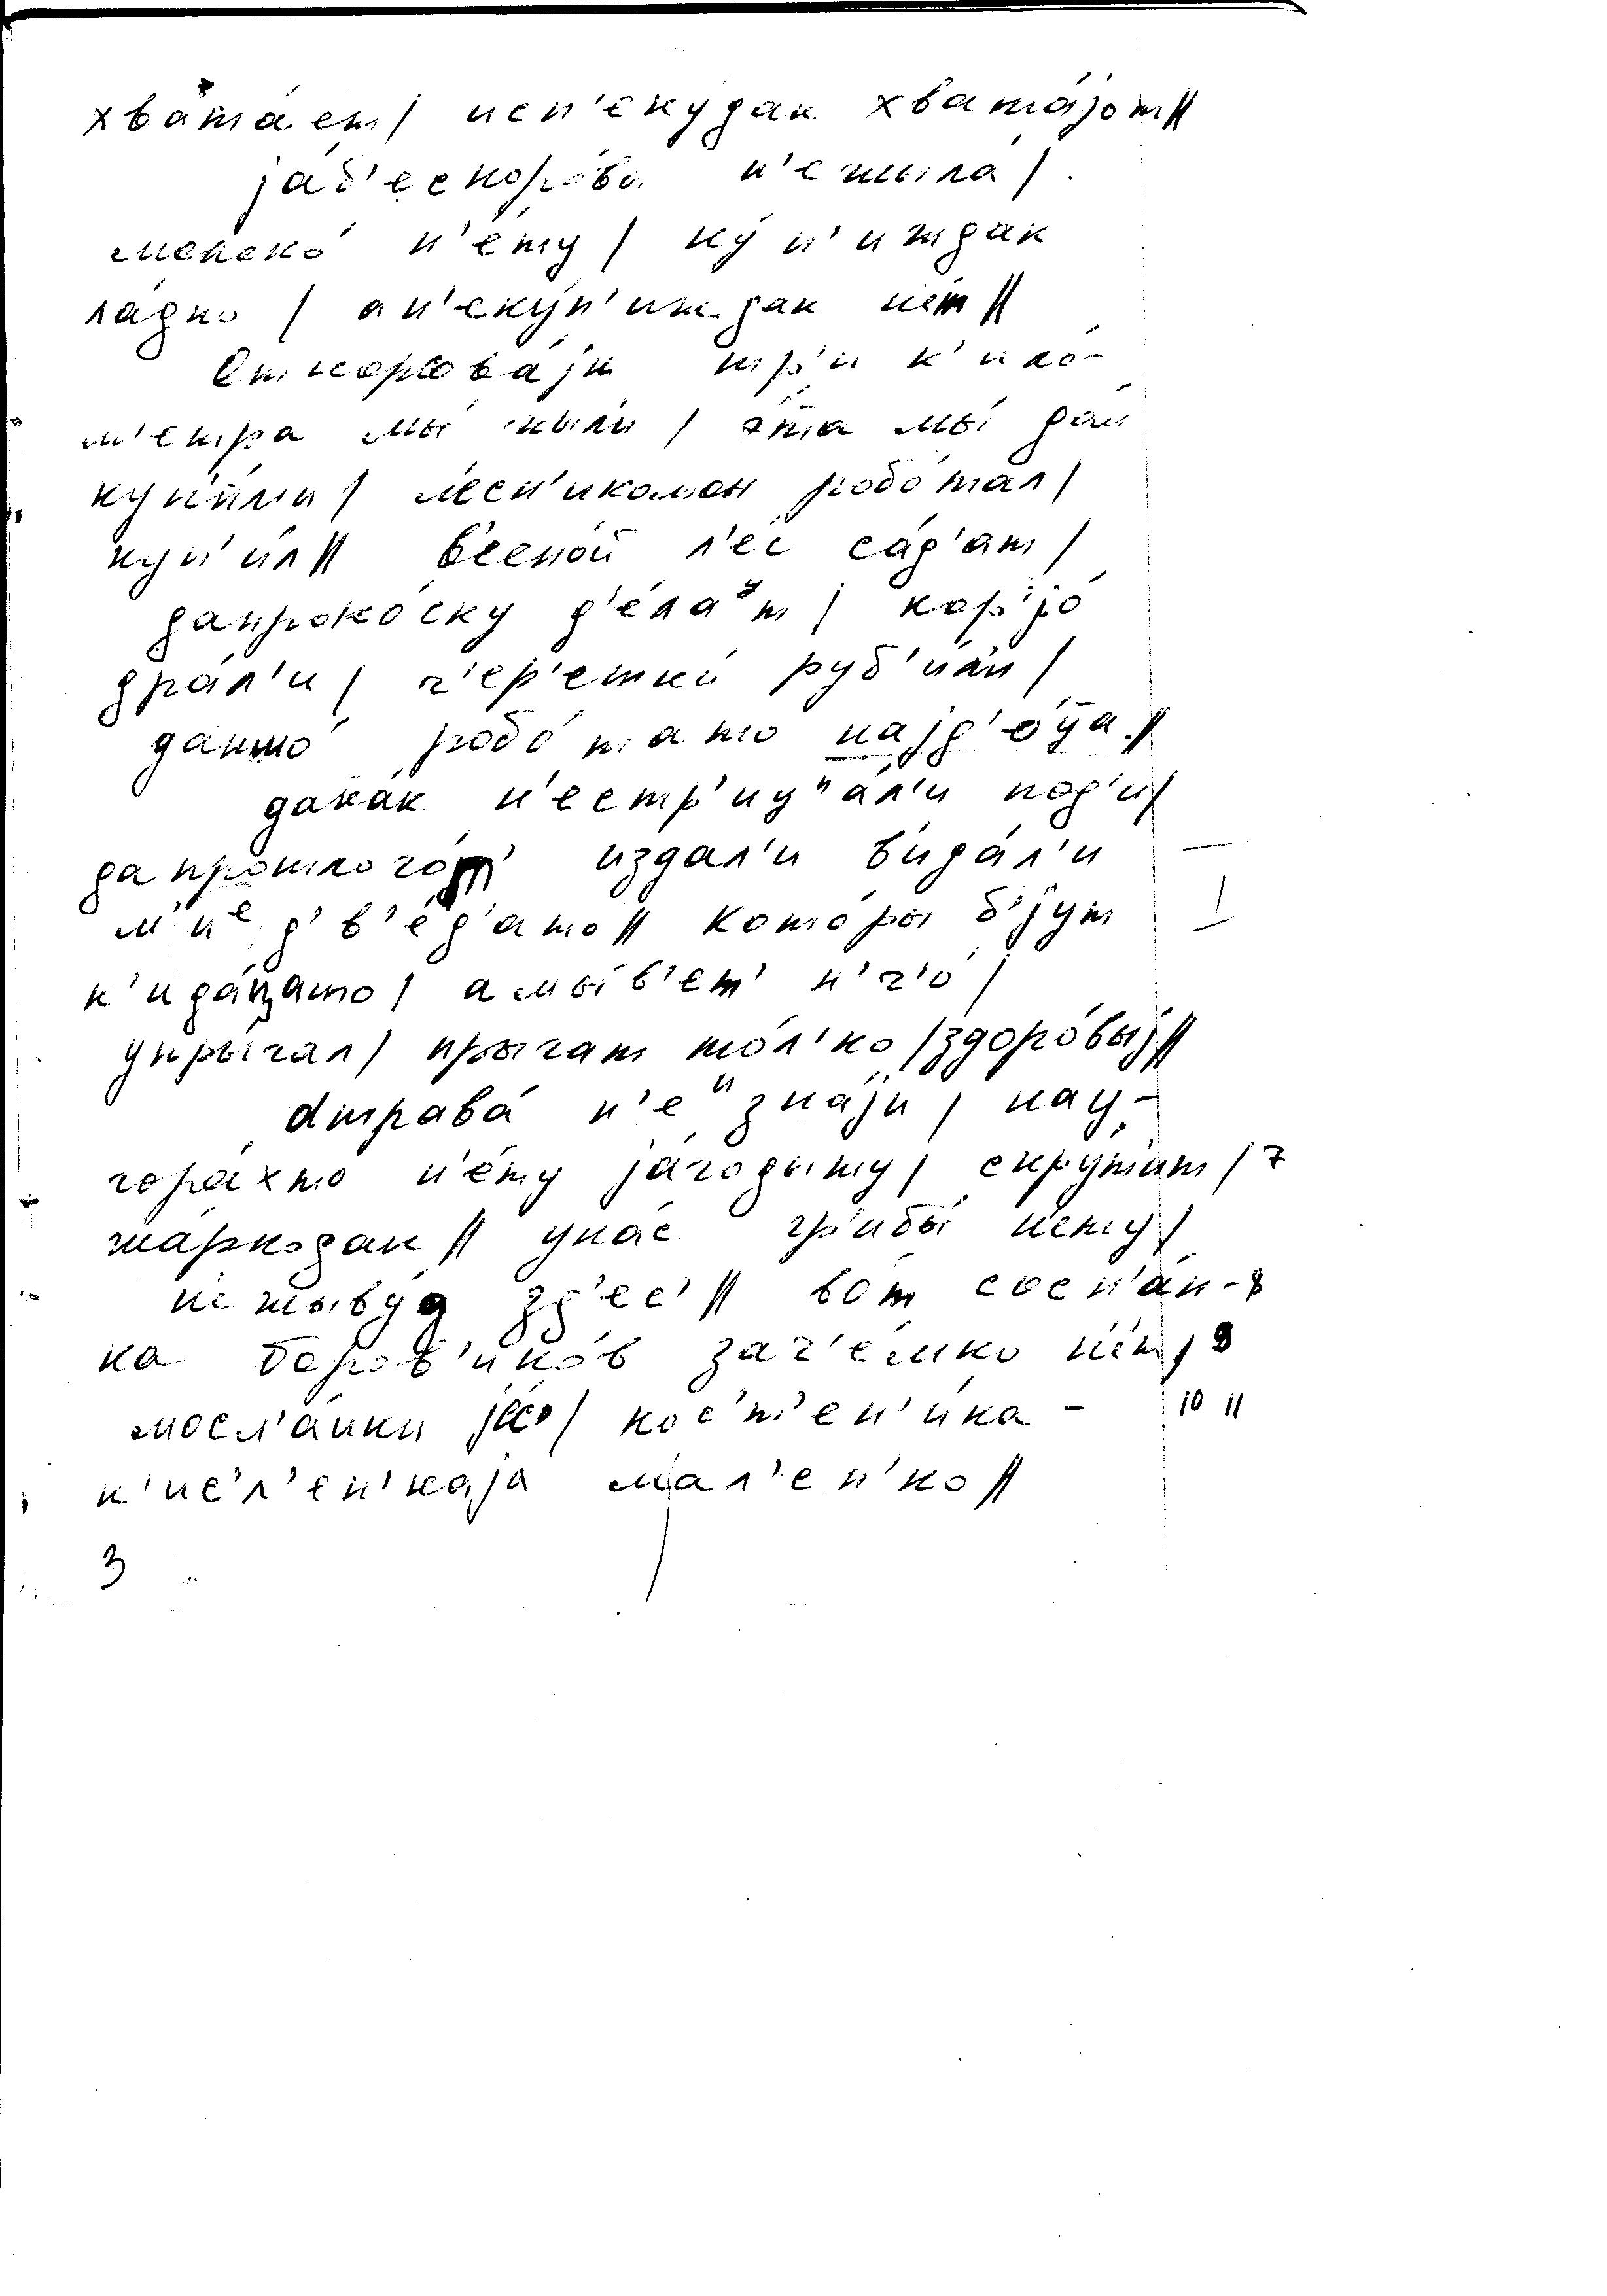 хвата́ет/ исп'еку́дак хвата́јот//
ја́б'ескоро́вы н'ежыла́/.
молоко́ н'е́ту/ ку́п'иждак
ла́дно/ ан'еку́п'иждак не́т//
три к'ило́-
м'етра мы́ жыли/ э́та мы́ дом
купи́ли/ ле́сн'икомон робо́тал/
куп'и́л// в'есно́й л'е́с са́д'ат/
дапроко́ску д'е́лаᵘт/ кор'jо́
дра́л'и/ ч'ер'етки́ руб'и́ли/
дамно́ робо́тато најд'о́ца.//
дака́к н'естр'ицᵃа́л'и под'и/
да прошлого́т' издал'и вида́л'и
м'н'ᵉд'в'е́д'ато// кото́ры б'јут
к'ида́цато/ амы́в'ет' н'ч'о́/
упры́гал/ прыгат то́л'ко/здоро́выј//
атрава́ н'еᵘзна́ју/ нау-
гора́хто н'е́ту ја́годыту/ скру́тит/ 7
жа́ркодак// уна́с грибы́ не́ту/
не жыву́д зд'ес'// во́т сосн'а́н- 8
ка боров'ико́в зач'е́мко не́т/ 9
мосл'а́нки је́с'/ кос'т'ен'и́ка - 10 11
к'ис'л'ен'каја мал'ен'ко//
3